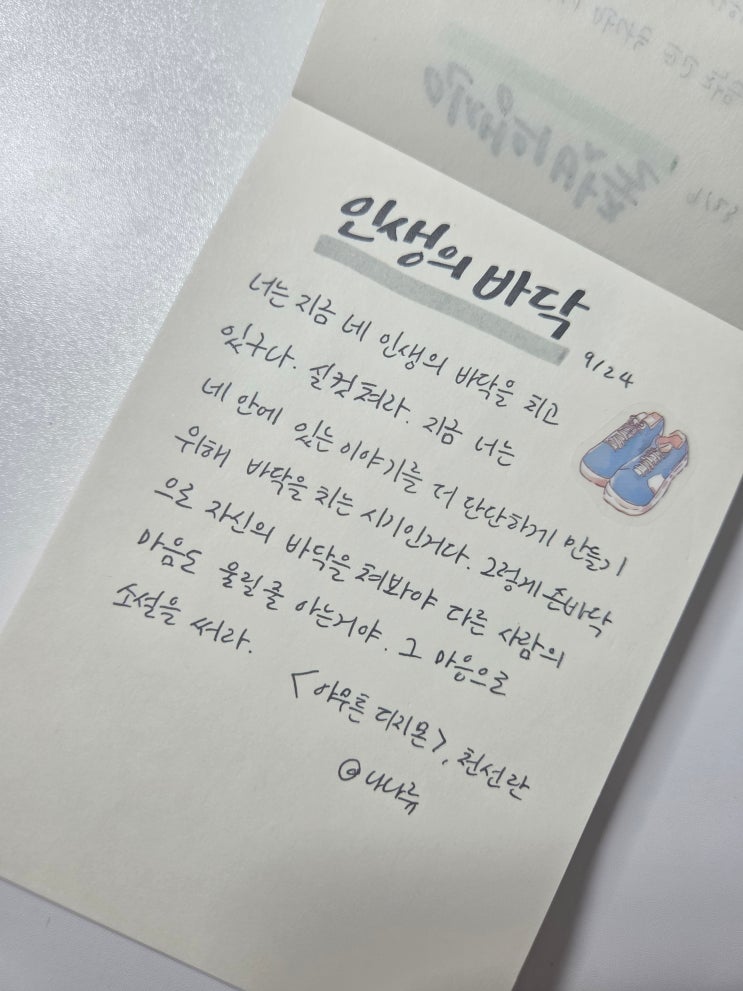 인생의 바닥
9/24
너는 지금 네 인생의 바닥을 치고
있구나. 실컷 쳐라. 지금 너는
네 안에 있는 이야기를 더 단단하게 만들기
위해 바닥을 치는 시기인거다. 그렇게 온바닥
으로 자신의 바닥을 쳐봐야 다른 사람의
마음도 울릴 줄 아는거야. 그 마음으로
소설을 써라.
<아무튼 디지몬>, 천선란
@나나뉴